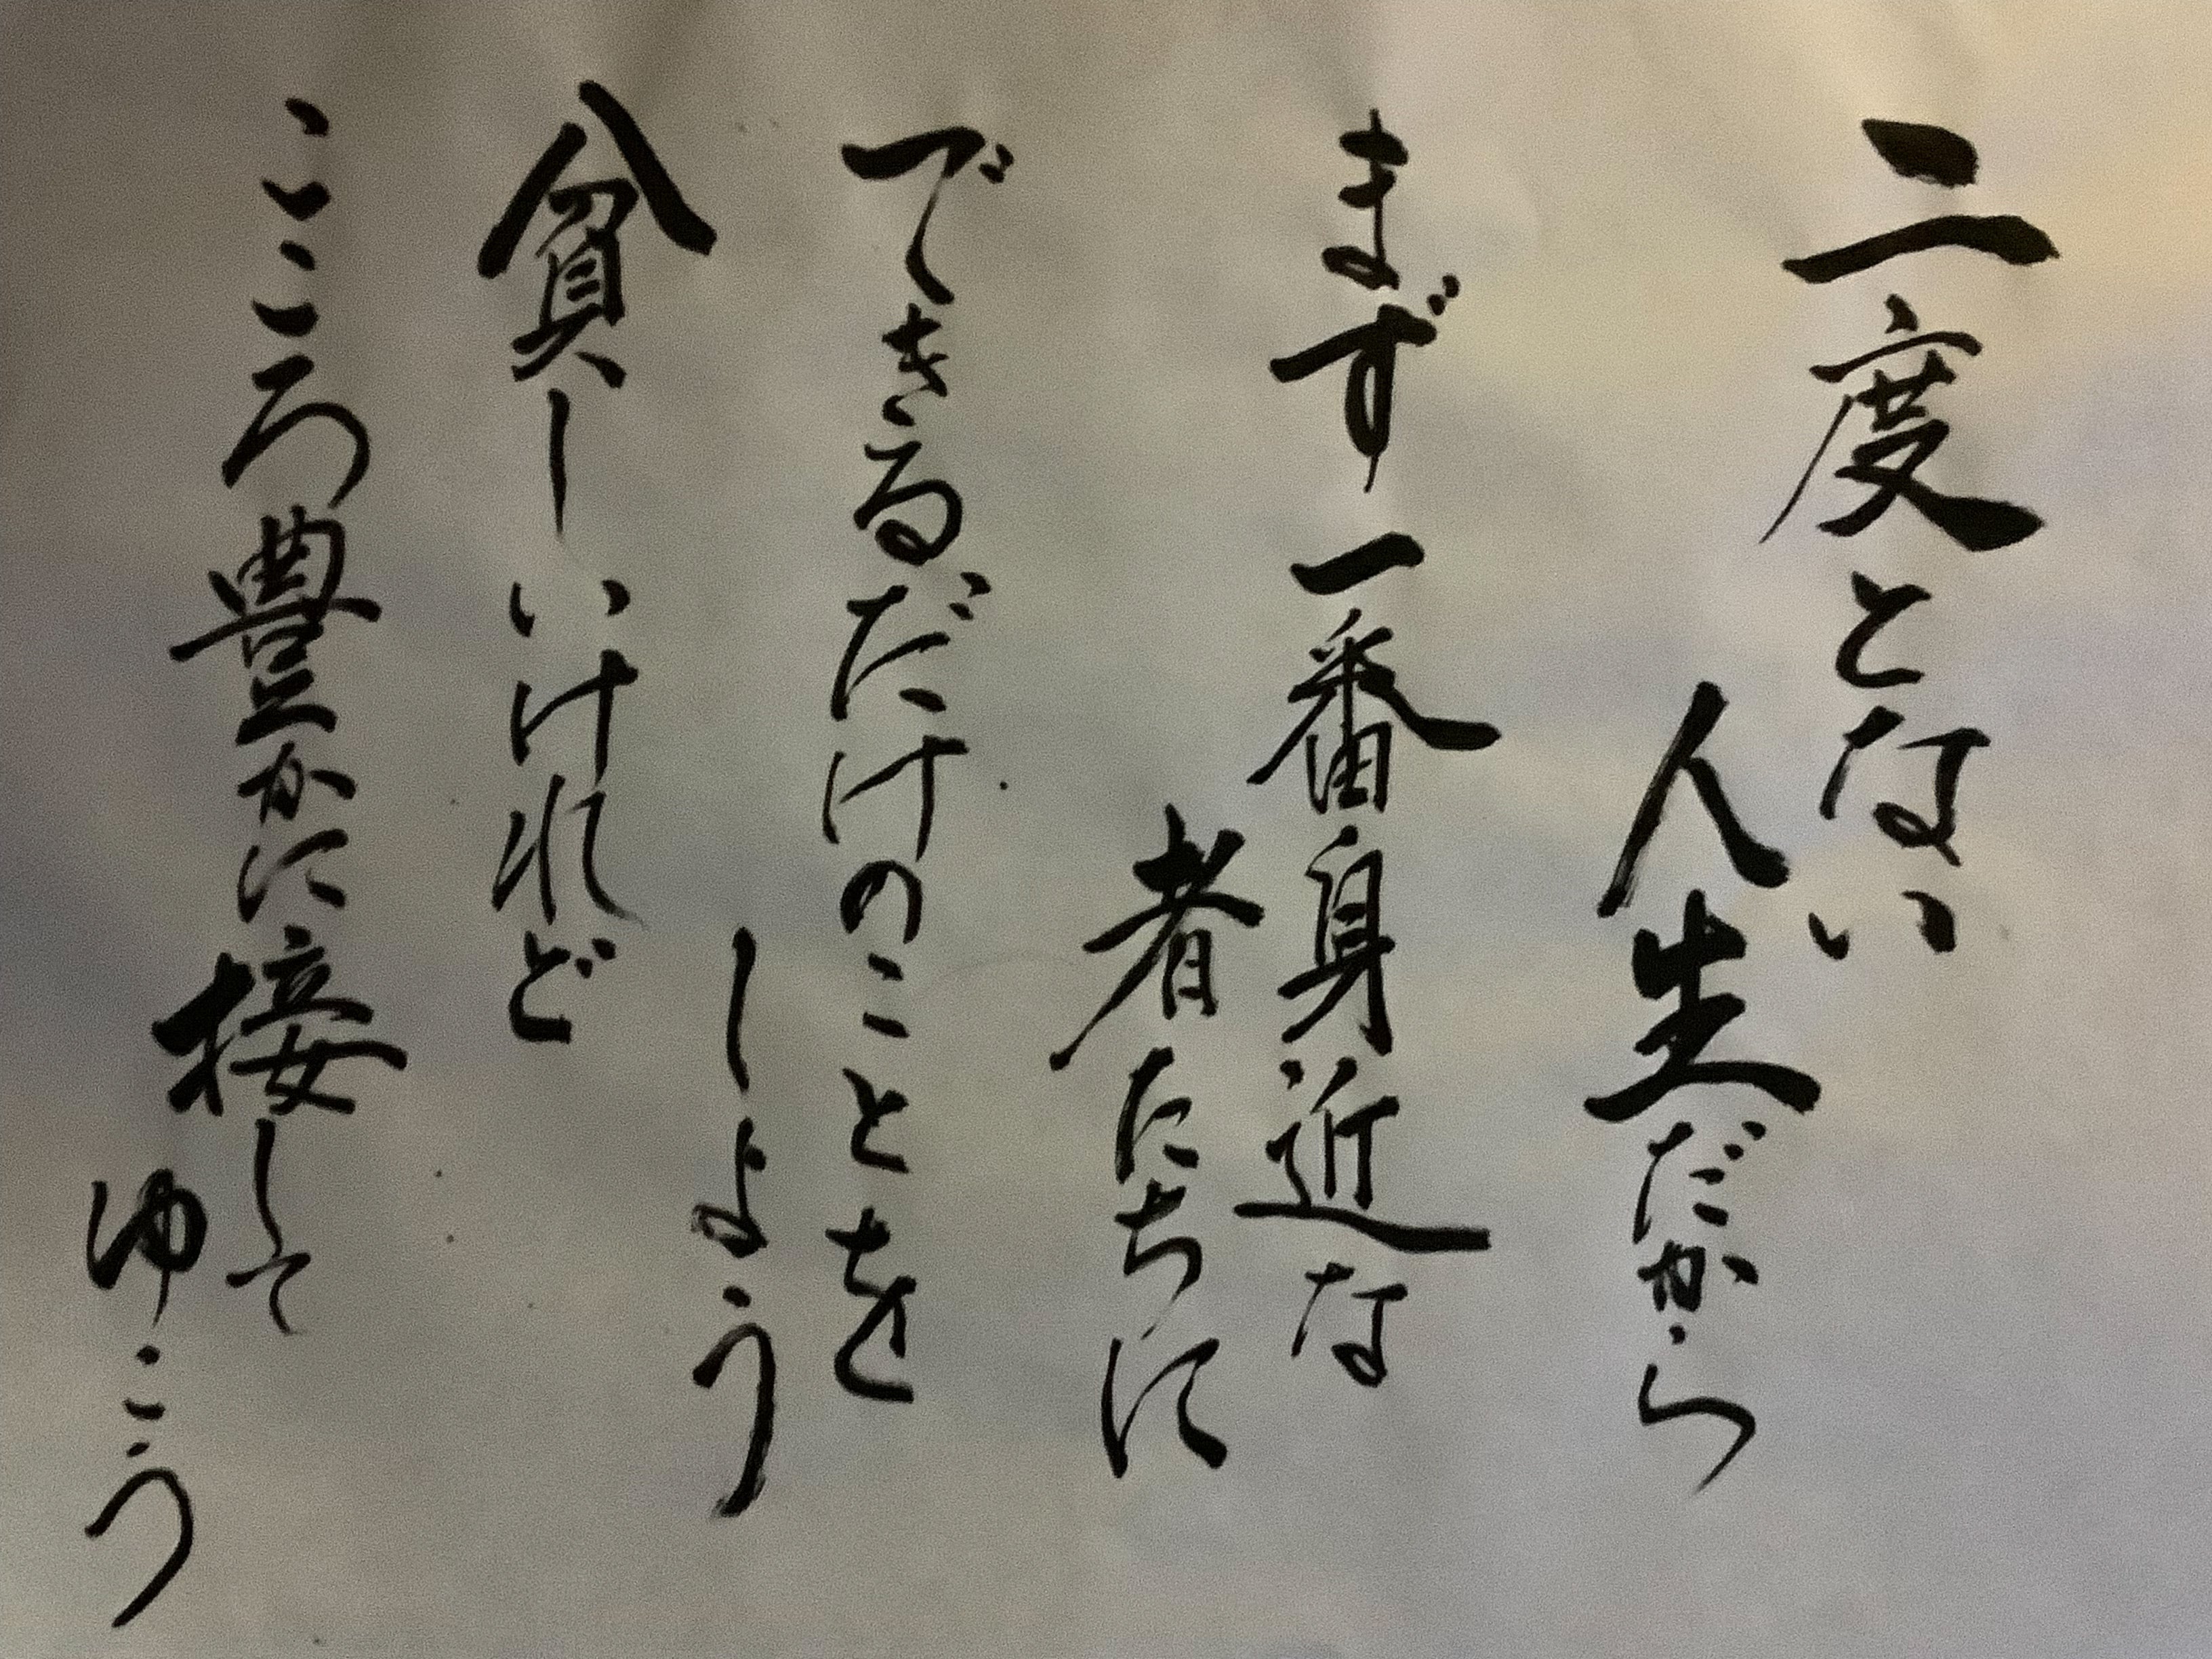 二度とない
人生だから
まず一番身近な
者たちに
できるだけのことを
しよう
貧しいけれど
こころ豊かに接して
ゆこう